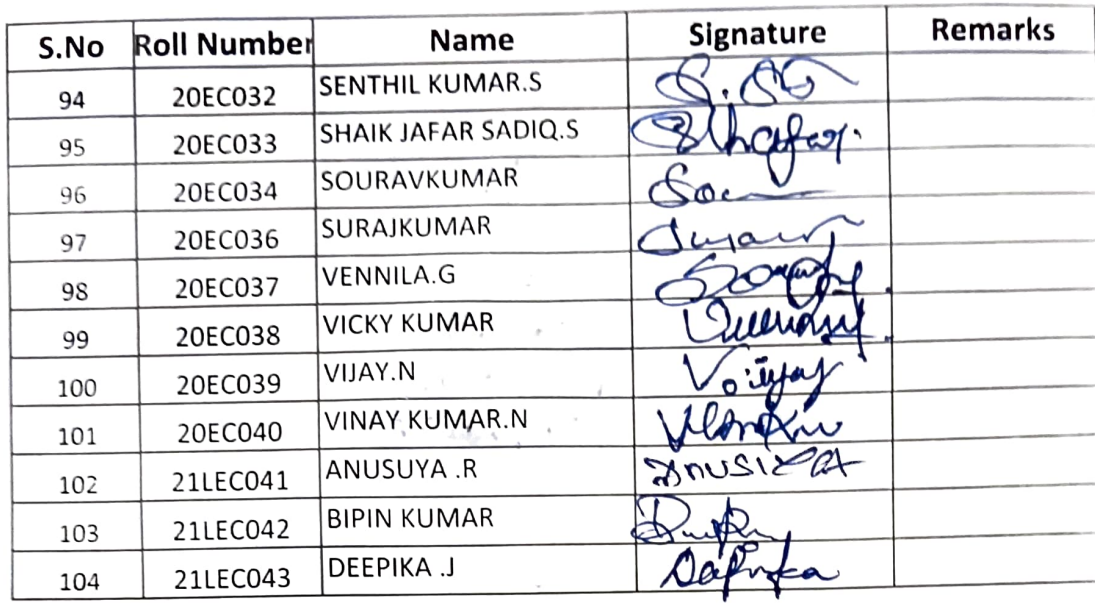 S.No Roll Number Name Signature Remarks
94 20EC032 SENTHIL KUMAR.S
95 20EC033 SHAIK JAFAR SADIQ.S
96 20EC034 SOURAVKUMAR
97 20EC036 SURAJKUMAR
98 20EC037 VENNILA.G
99 20EC038 VICKY KUMAR
100 20EC039 VIJAY.N
101 20EC040 VINAY KUMAR.N
102 21LEC041 ANUSUYA .R
103 21LEC042 BIPIN KUMAR
104 21LEC043 DEEPIKA .J